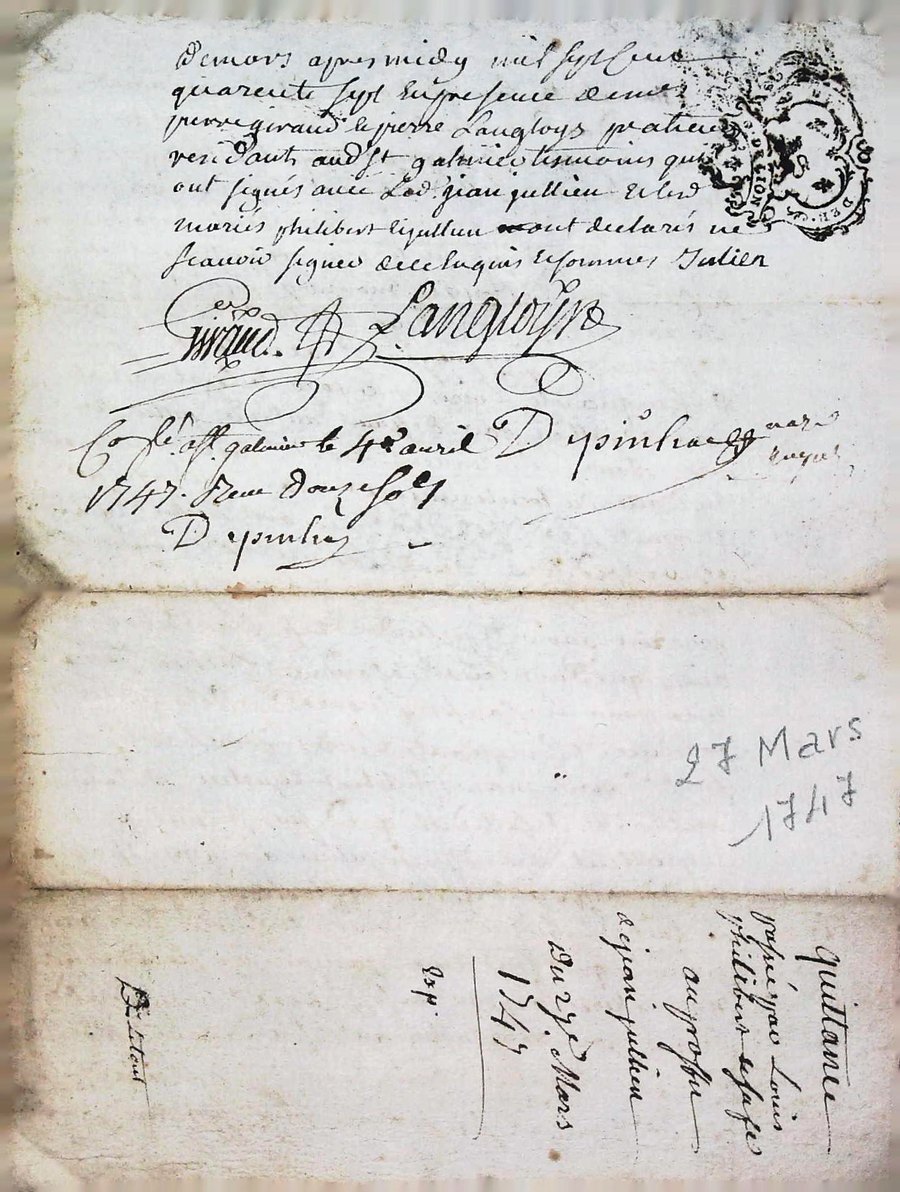 demars apres midy mil sept Cent
quarente sept En presence de mes
pierre giraud & pierre Langloys praticiens
residants aud St galmier temoins qui
ont signés avec Led. jean jullien Et les d
mariés philibert & jullien ont declarés ne
scavoir signer de ce Enquis Et sommés Julien
Giraud. Langloys
Colé. aff. galmier le 4e avril
Depinhac nore
royal
1747. Reçu douze sols
Depinhac
DE LION
27 Mars
1747
quittance
passé par Louis
philibert & sa fe
au proffit
de jean jullien
Du 27e. Mars
1747
Exp.